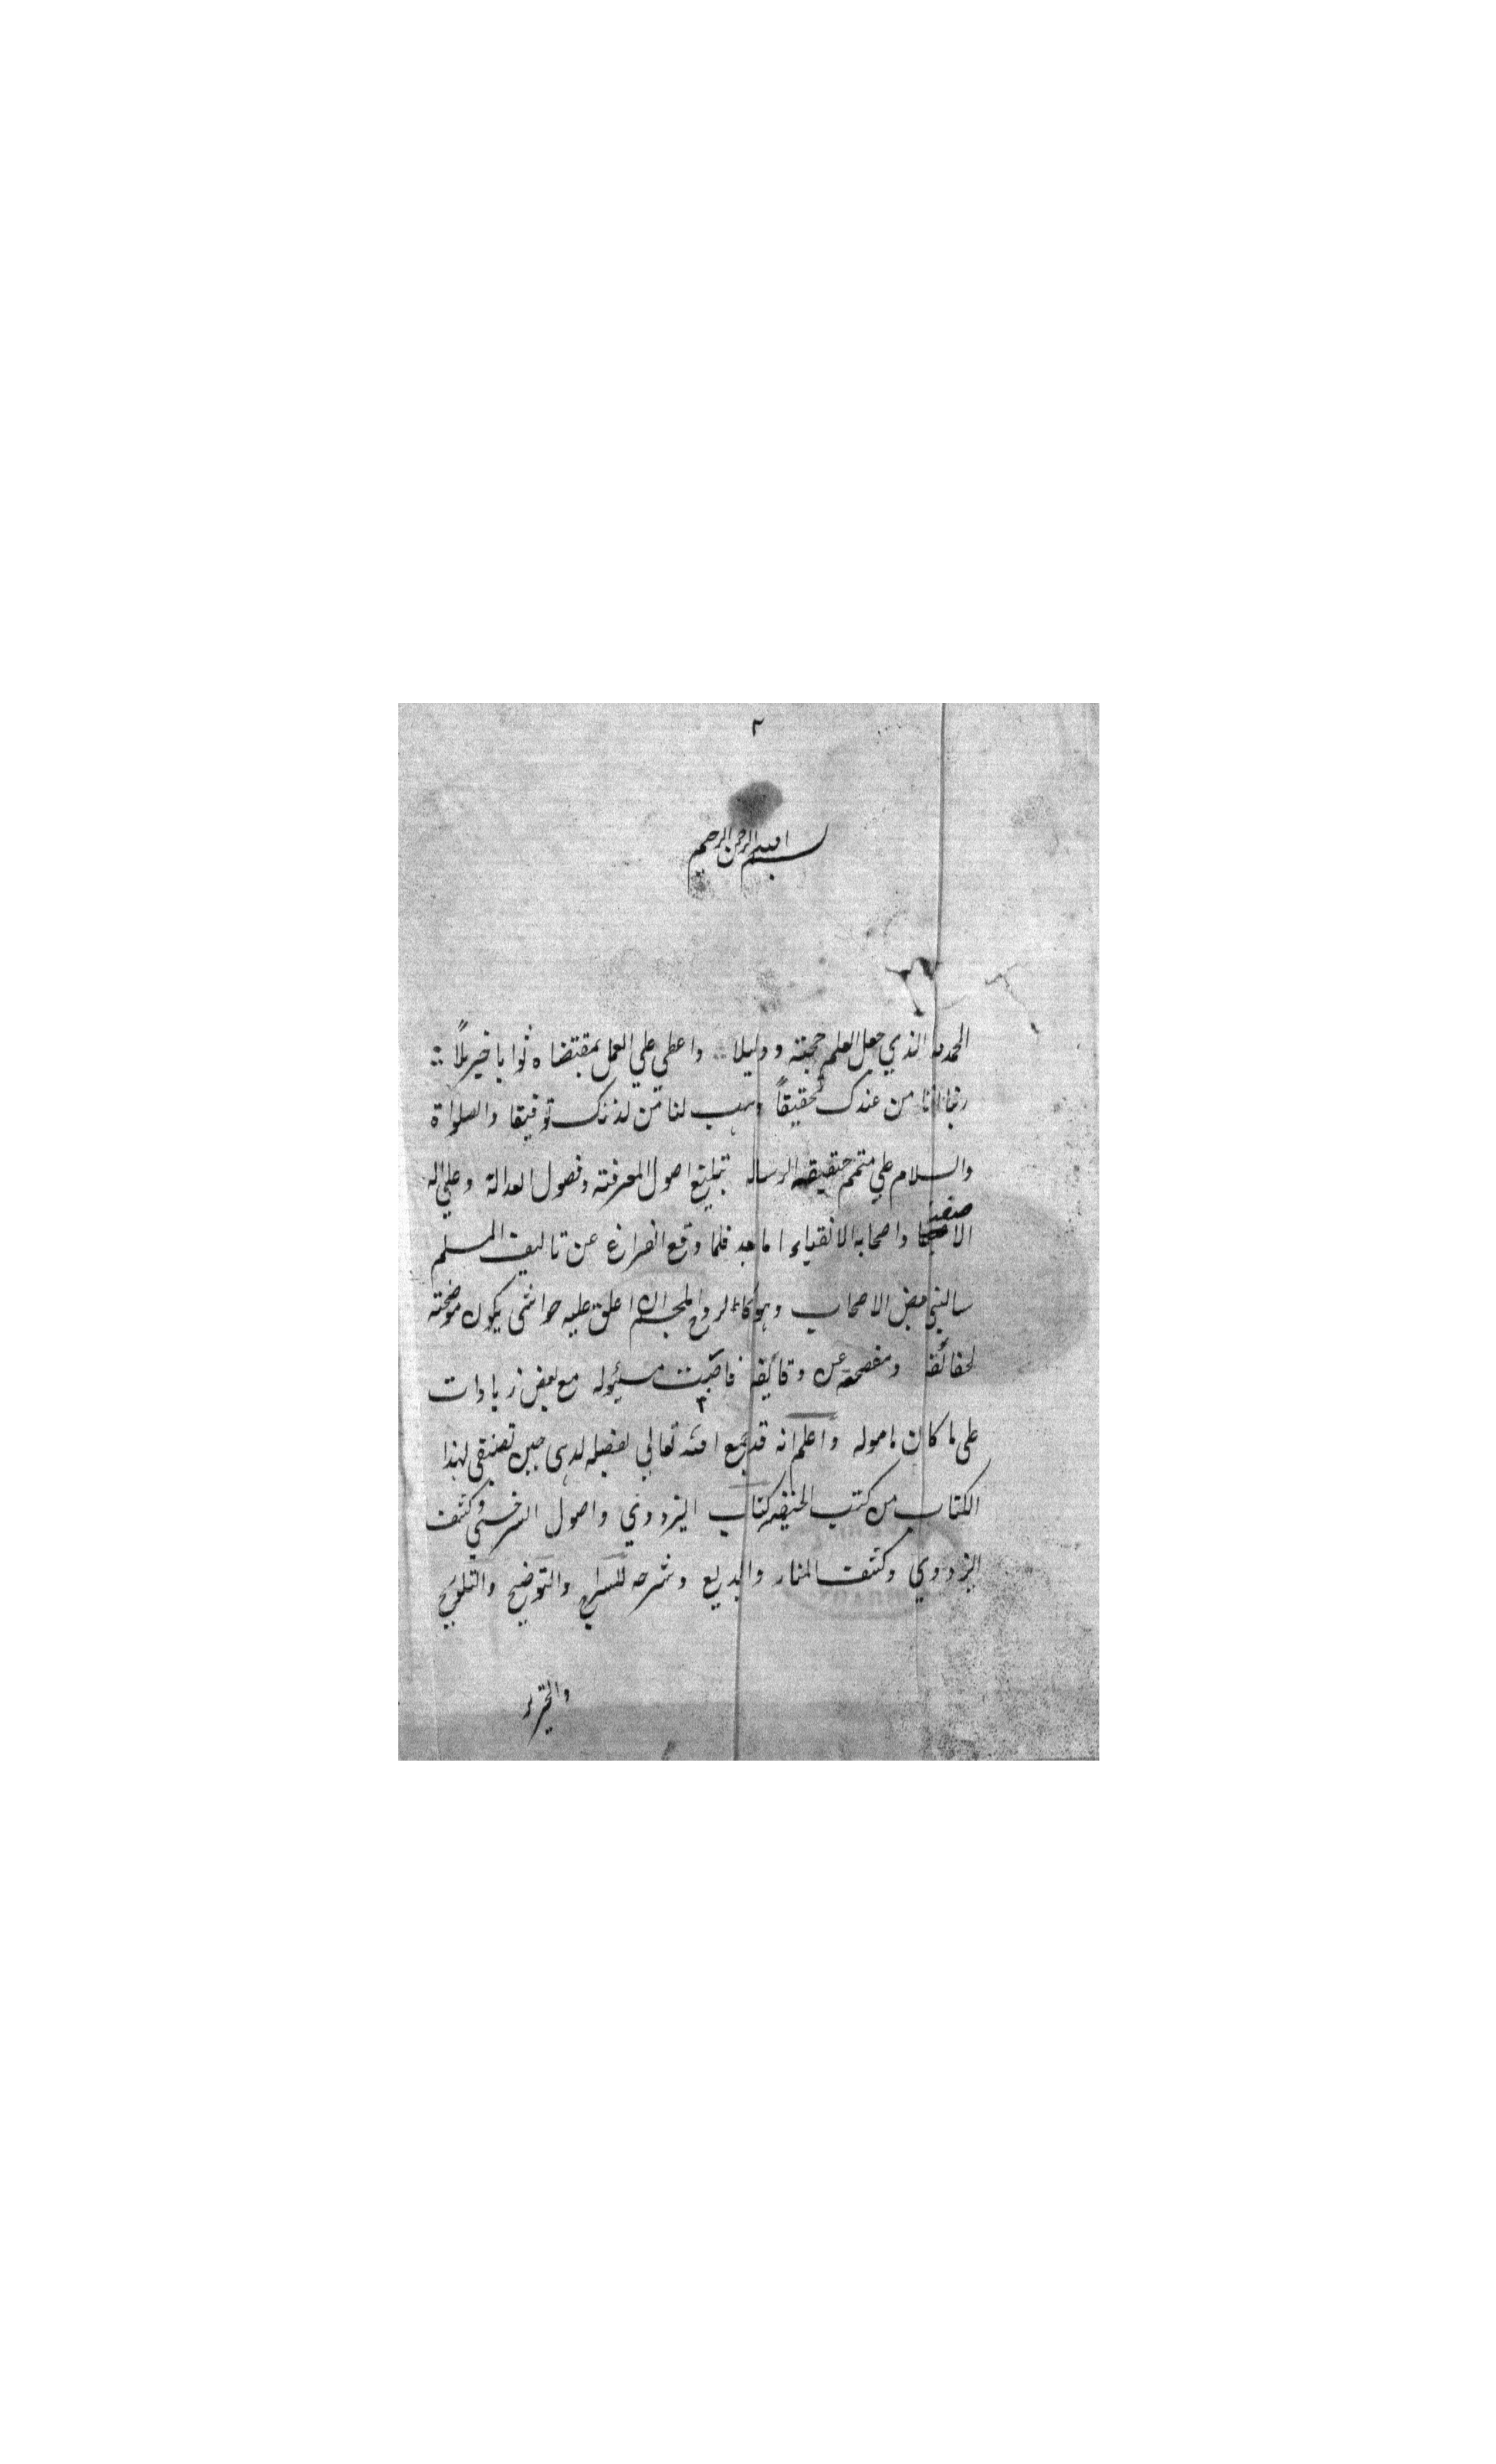 ٢
بسم الله الرحمن الرحيم
الحمد لله الذي جعل العلم حجته ودليلا واعطي علي العمل بمقتضاه ثوابا جزيلاً
ربنا اتنا من عندك تحقيقاً وهب لنا من لدنك توفيقا والصلواة
والسلام علي متمم حقيقه الرساله بتبليغ اصول المعرفته وفصول العدالة وعلي اله
الاصفيا واصحابه الاتقياء اما بعد فلما وقع الفراغ عن تاليف المسلم
سالني بعض الاصحاب وهو كالروح للجسد ان اعلق عليه حواشي يكون موضحته
لحقائقه ومفصحة عن دقايقه فاجبت مسئوله مع بعض زيادات
٣
علي ما كان ماموله واعلم انه قد جمع الله تعالي بفضله لدي حين تصنيفي لهذا
الكتاب من كتب الحنيفه كتاب البزدوي واصول السرخسي وكشف
البزدوي وكشف المنار والبديع وشرحه للسراج والتوضيح والتلويح
والتحرير